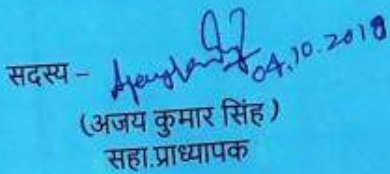 सदस्य - 04.10.2018
(अजय कुमार सिंह)
सहा.प्राध्यापक